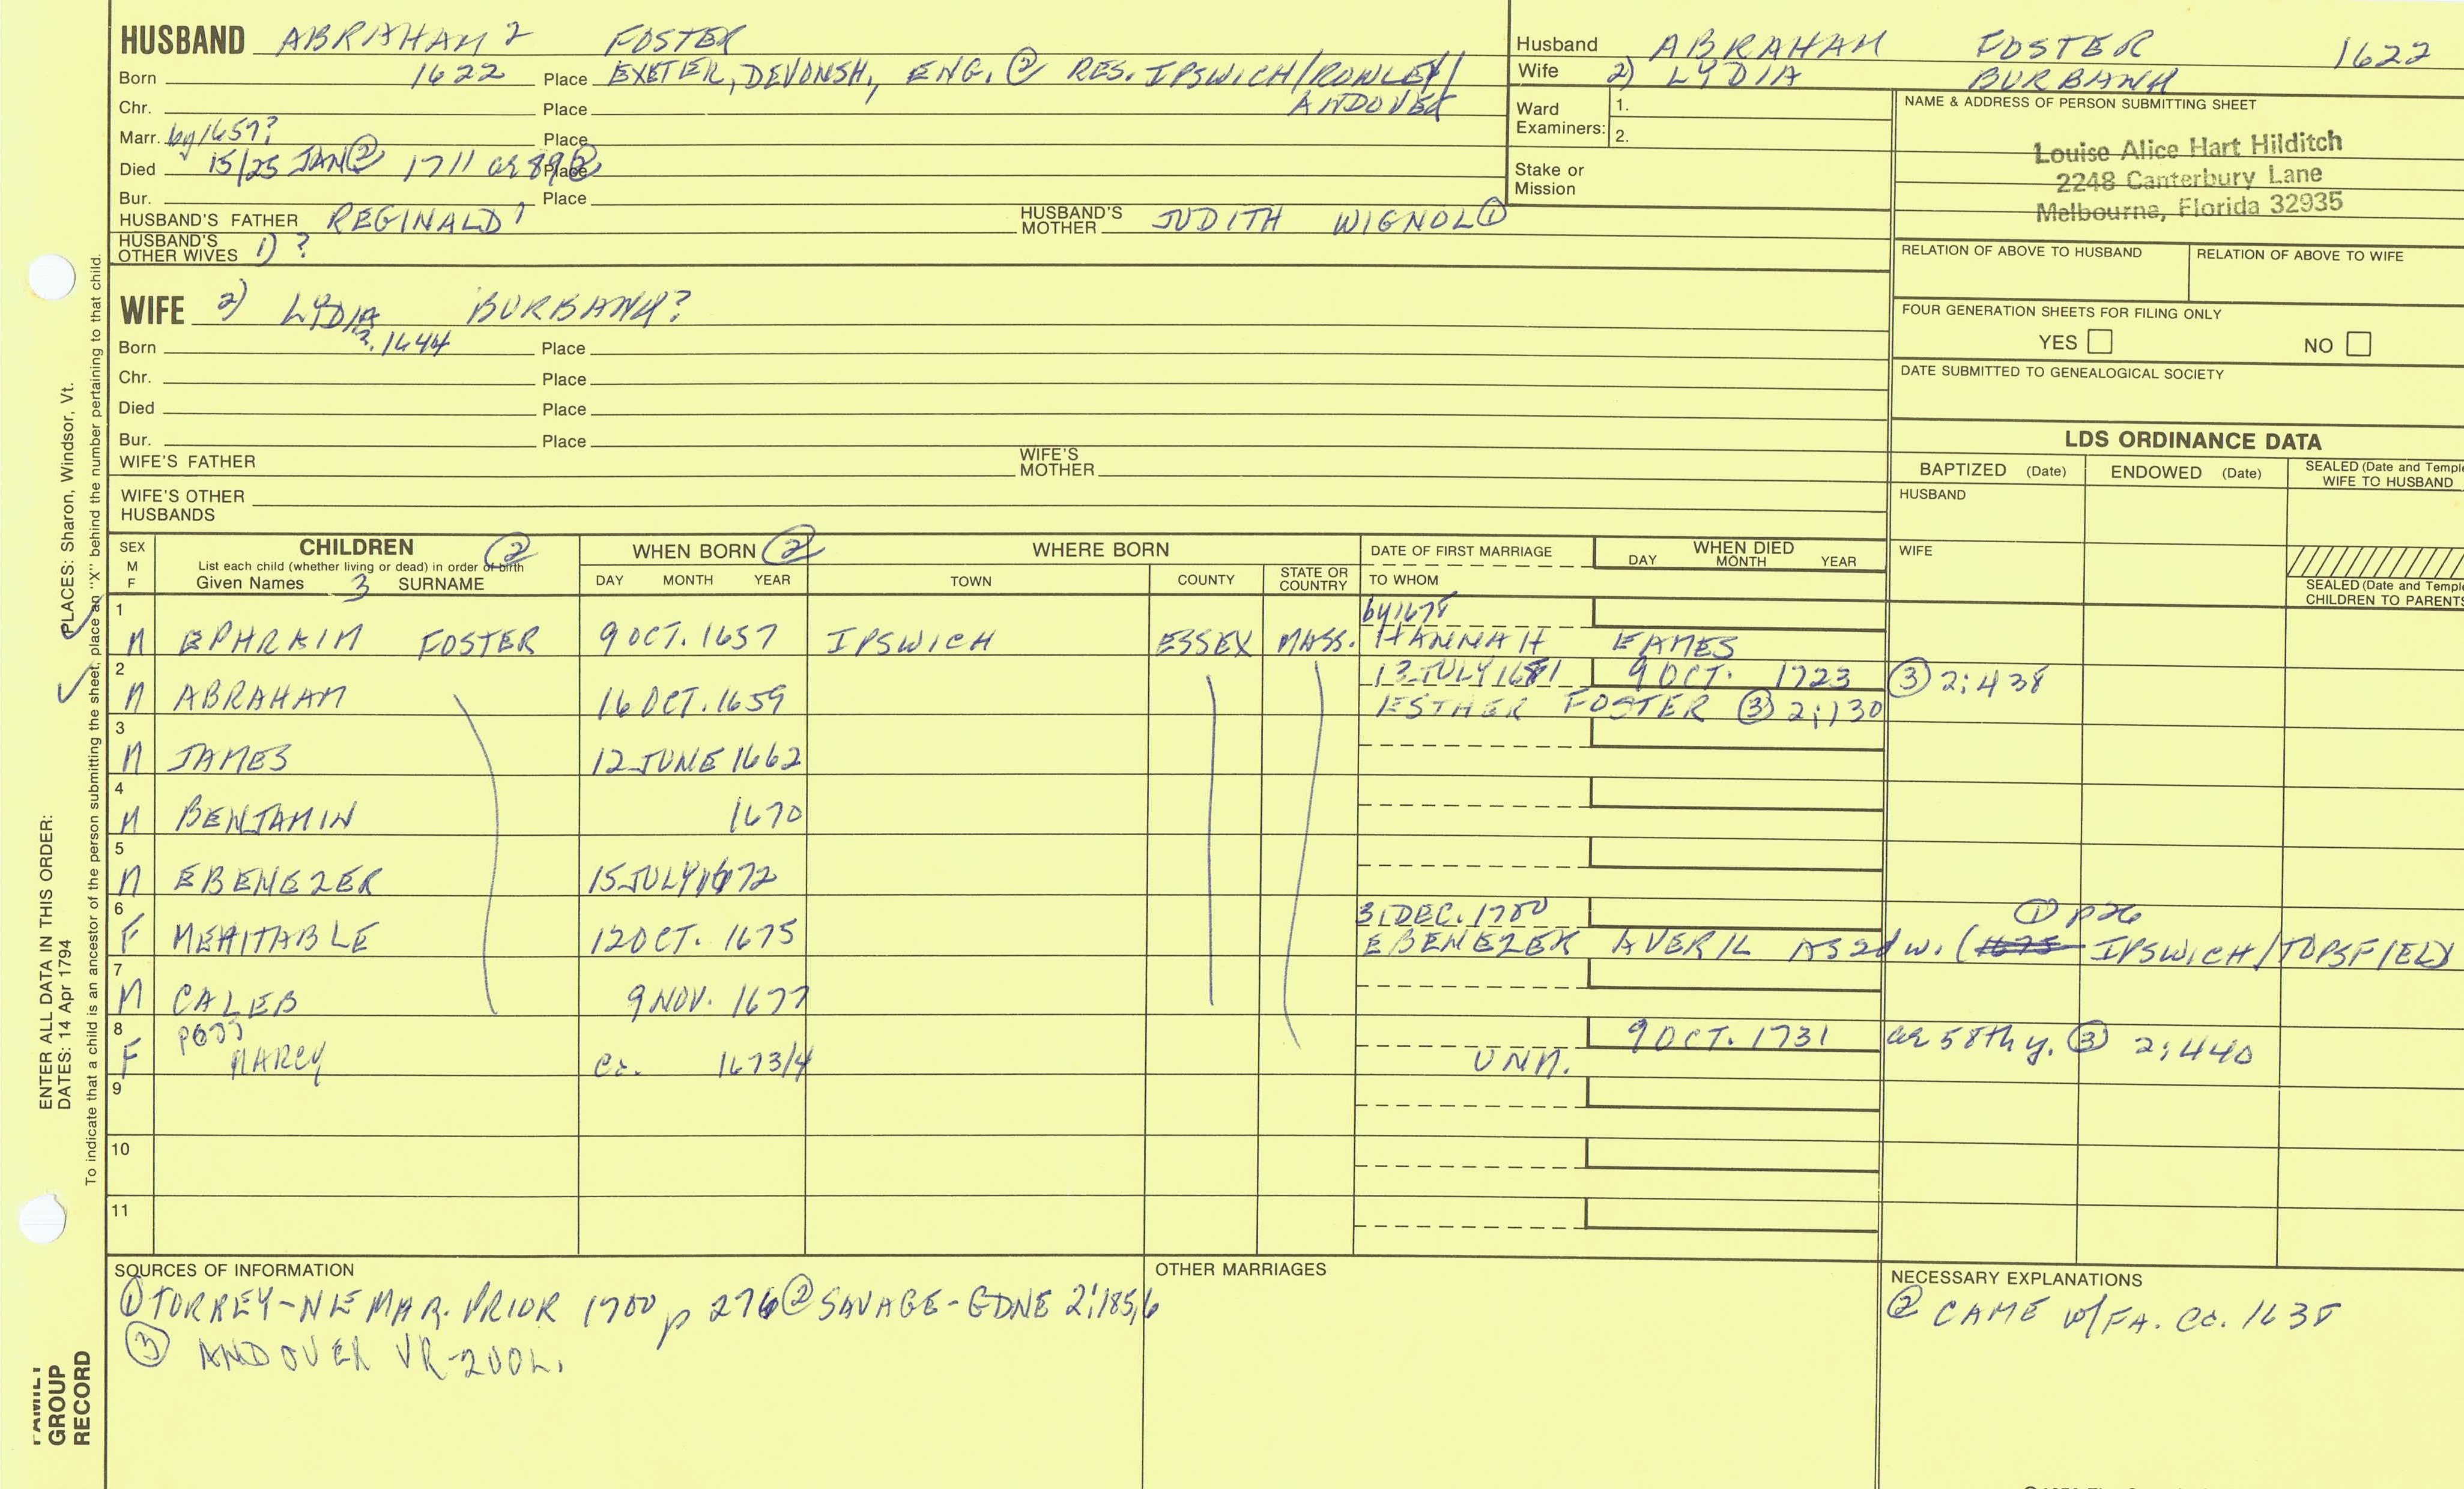 HUSBAND ABRAHAM 2 FOSTER
Born 1622 Place EXETER, DEVONSH, ENG. ② RES. IPSWICH/ROWLEY/
ANDOVER
Chr. Place
Marr. by 1657? Place
Died 15/25 JAN ② 1711 ae 89 ② Place
Bur. Place
HUSBAND'S FATHER REGINALD 1 HUSBAND'S MOTHER JUDITH WIGNOL ①
HUSBAND'S OTHER WIVES 1) ?
Husband ABRAHAM FOSTER 1622
Wife 2) LYDIA BURBANK
Ward Examiners: 1.
2.
Stake or Mission
NAME & ADDRESS OF PERSON SUBMITTING SHEET
Louise Alice Hart Hilditch
2248 Canterbury Lane
Melbourne, Florida 32935
RELATION OF ABOVE TO HUSBAND RELATION OF ABOVE TO WIFE
FOUR GENERATION SHEETS FOR FILING ONLY
YES NO
DATE SUBMITTED TO GENEALOGICAL SOCIETY
WIFE 2) LYDIA BURBANK?
Born 1644 Place
Chr. Place
Died Place
Bur. Place
WIFE'S FATHER WIFE'S MOTHER
WIFE'S OTHER HUSBANDS
LDS ORDINANCE DATA
BAPTIZED (Date) ENDOWED (Date) SEALED (Date and Temple
WIFE TO HUSBAND
HUSBAND
WIFE
SEALED (Date and Temple
CHILDREN TO PARENTS
SEX M F CHILDREN ② WHEN BORN ② WHERE BORN DATE OF FIRST MARRIAGE WHEN DIED
List each child (whether living or dead) in order of birth
Given Names 3 SURNAME DAY MONTH YEAR TOWN COUNTY STATE OR COUNTRY TO WHOM DAY MONTH YEAR
1 by 1678
M EPHRAIM FOSTER 9 OCT. 1657 IPSWICH ESSEX MASS. HANNAH EAMES
2 13 JULY 1681 9 OCT. 1723 ③ 2:438
M ABRAHAM 16 OCT. 1659 ESTHER FOSTER ③ 2:130
3
M JAMES 12 JUNE 1662
4
M BENJAMIN 1670
5
M EBENEZER 15 JULY 1672
6 31 DEC. 1700 ① p26
F MEHITABLE 12 OCT. 1675 EBENEZER AVERIL AS 2d w. ( IPSWICH/TOPSFIELD
7
M CALEB 9 NOV. 1677
8 poss 9 OCT. 1731 ae 58th y. ③ 2:440
F MARCY Ca. 1673/4 UNM.
9
10
11
SOURCES OF INFORMATION
① TORREY-NE MAR. PRIOR 1700 p 276 ② SAVAGE-GDNE 2:185,6
③ ANDOVER VR-2VOL.
OTHER MARRIAGES
NECESSARY EXPLANATIONS
② CAME w/FA. Ca. 1638
PLACES: Sharon, Windsor, Vt.
To indicate that a child is an ancestor of the person submitting the sheet, place an "X" behind the number pertaining to that child.
ENTER ALL DATA IN THIS ORDER:
DATES: 14 Apr 1794
FAMILY
GROUP
RECORD